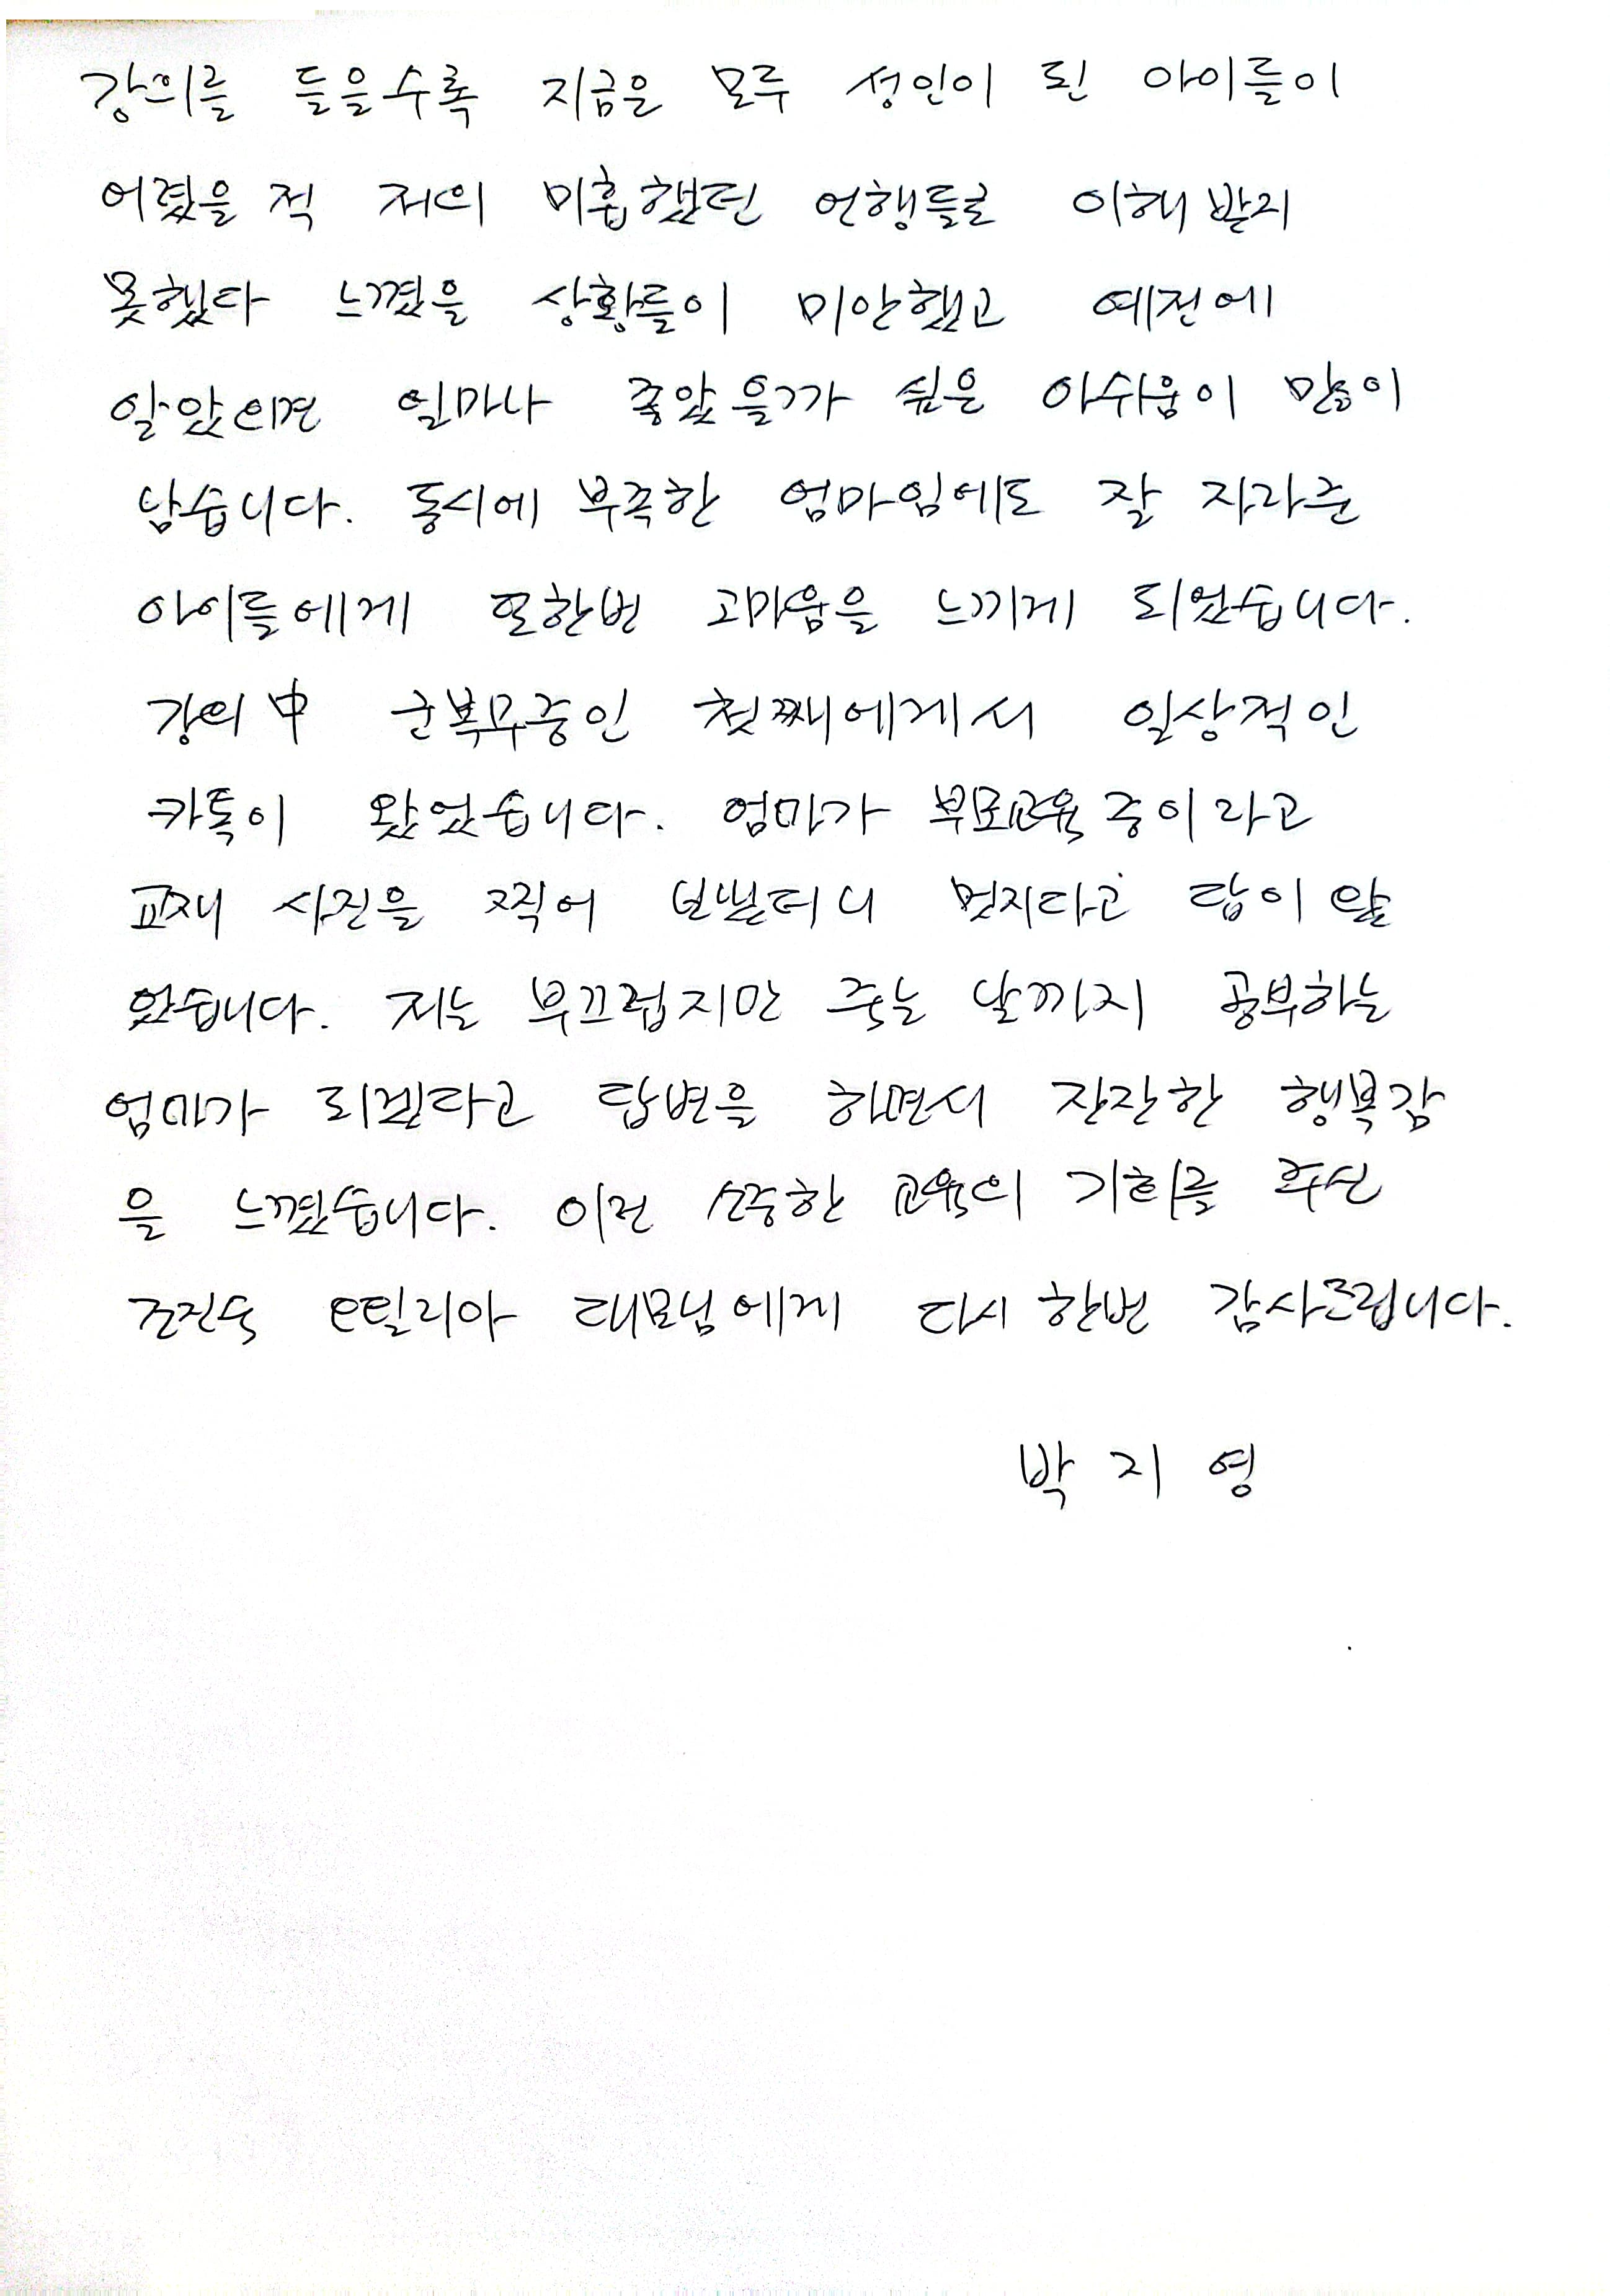 강의를 들을수록 지금은 모두 성인이 된 아이들이
어렸을 적 저의 미흡했던 언행들로 이해받지
못했다 느꼈을 상황들이 미안했고 예전에
알았으면 얼마나 좋았을까 싶은 아쉬움이 많이
남습니다. 동시에 부족한 엄마임에도 잘 자라준
아이들에게 또한번 고마움을 느끼게 되었습니다.
강의 中 군복무중인 첫째에게서 일상적인
카톡이 왔었습니다. 엄마가 부모교육 중이라고
교재 사진을 찍어 보냈더니 멋지다고 답이
왔습니다. 저는 부끄럽지만 죽는 날까지 공부하는
엄마가 되겠다고 답변을 하면서 잔잔한 행복감
을 느꼈습니다. 이런 소중한 교육의 기회를 주신
조진숙 오틸리아 대모님에게 다시 한번 감사드립니다.
박지영